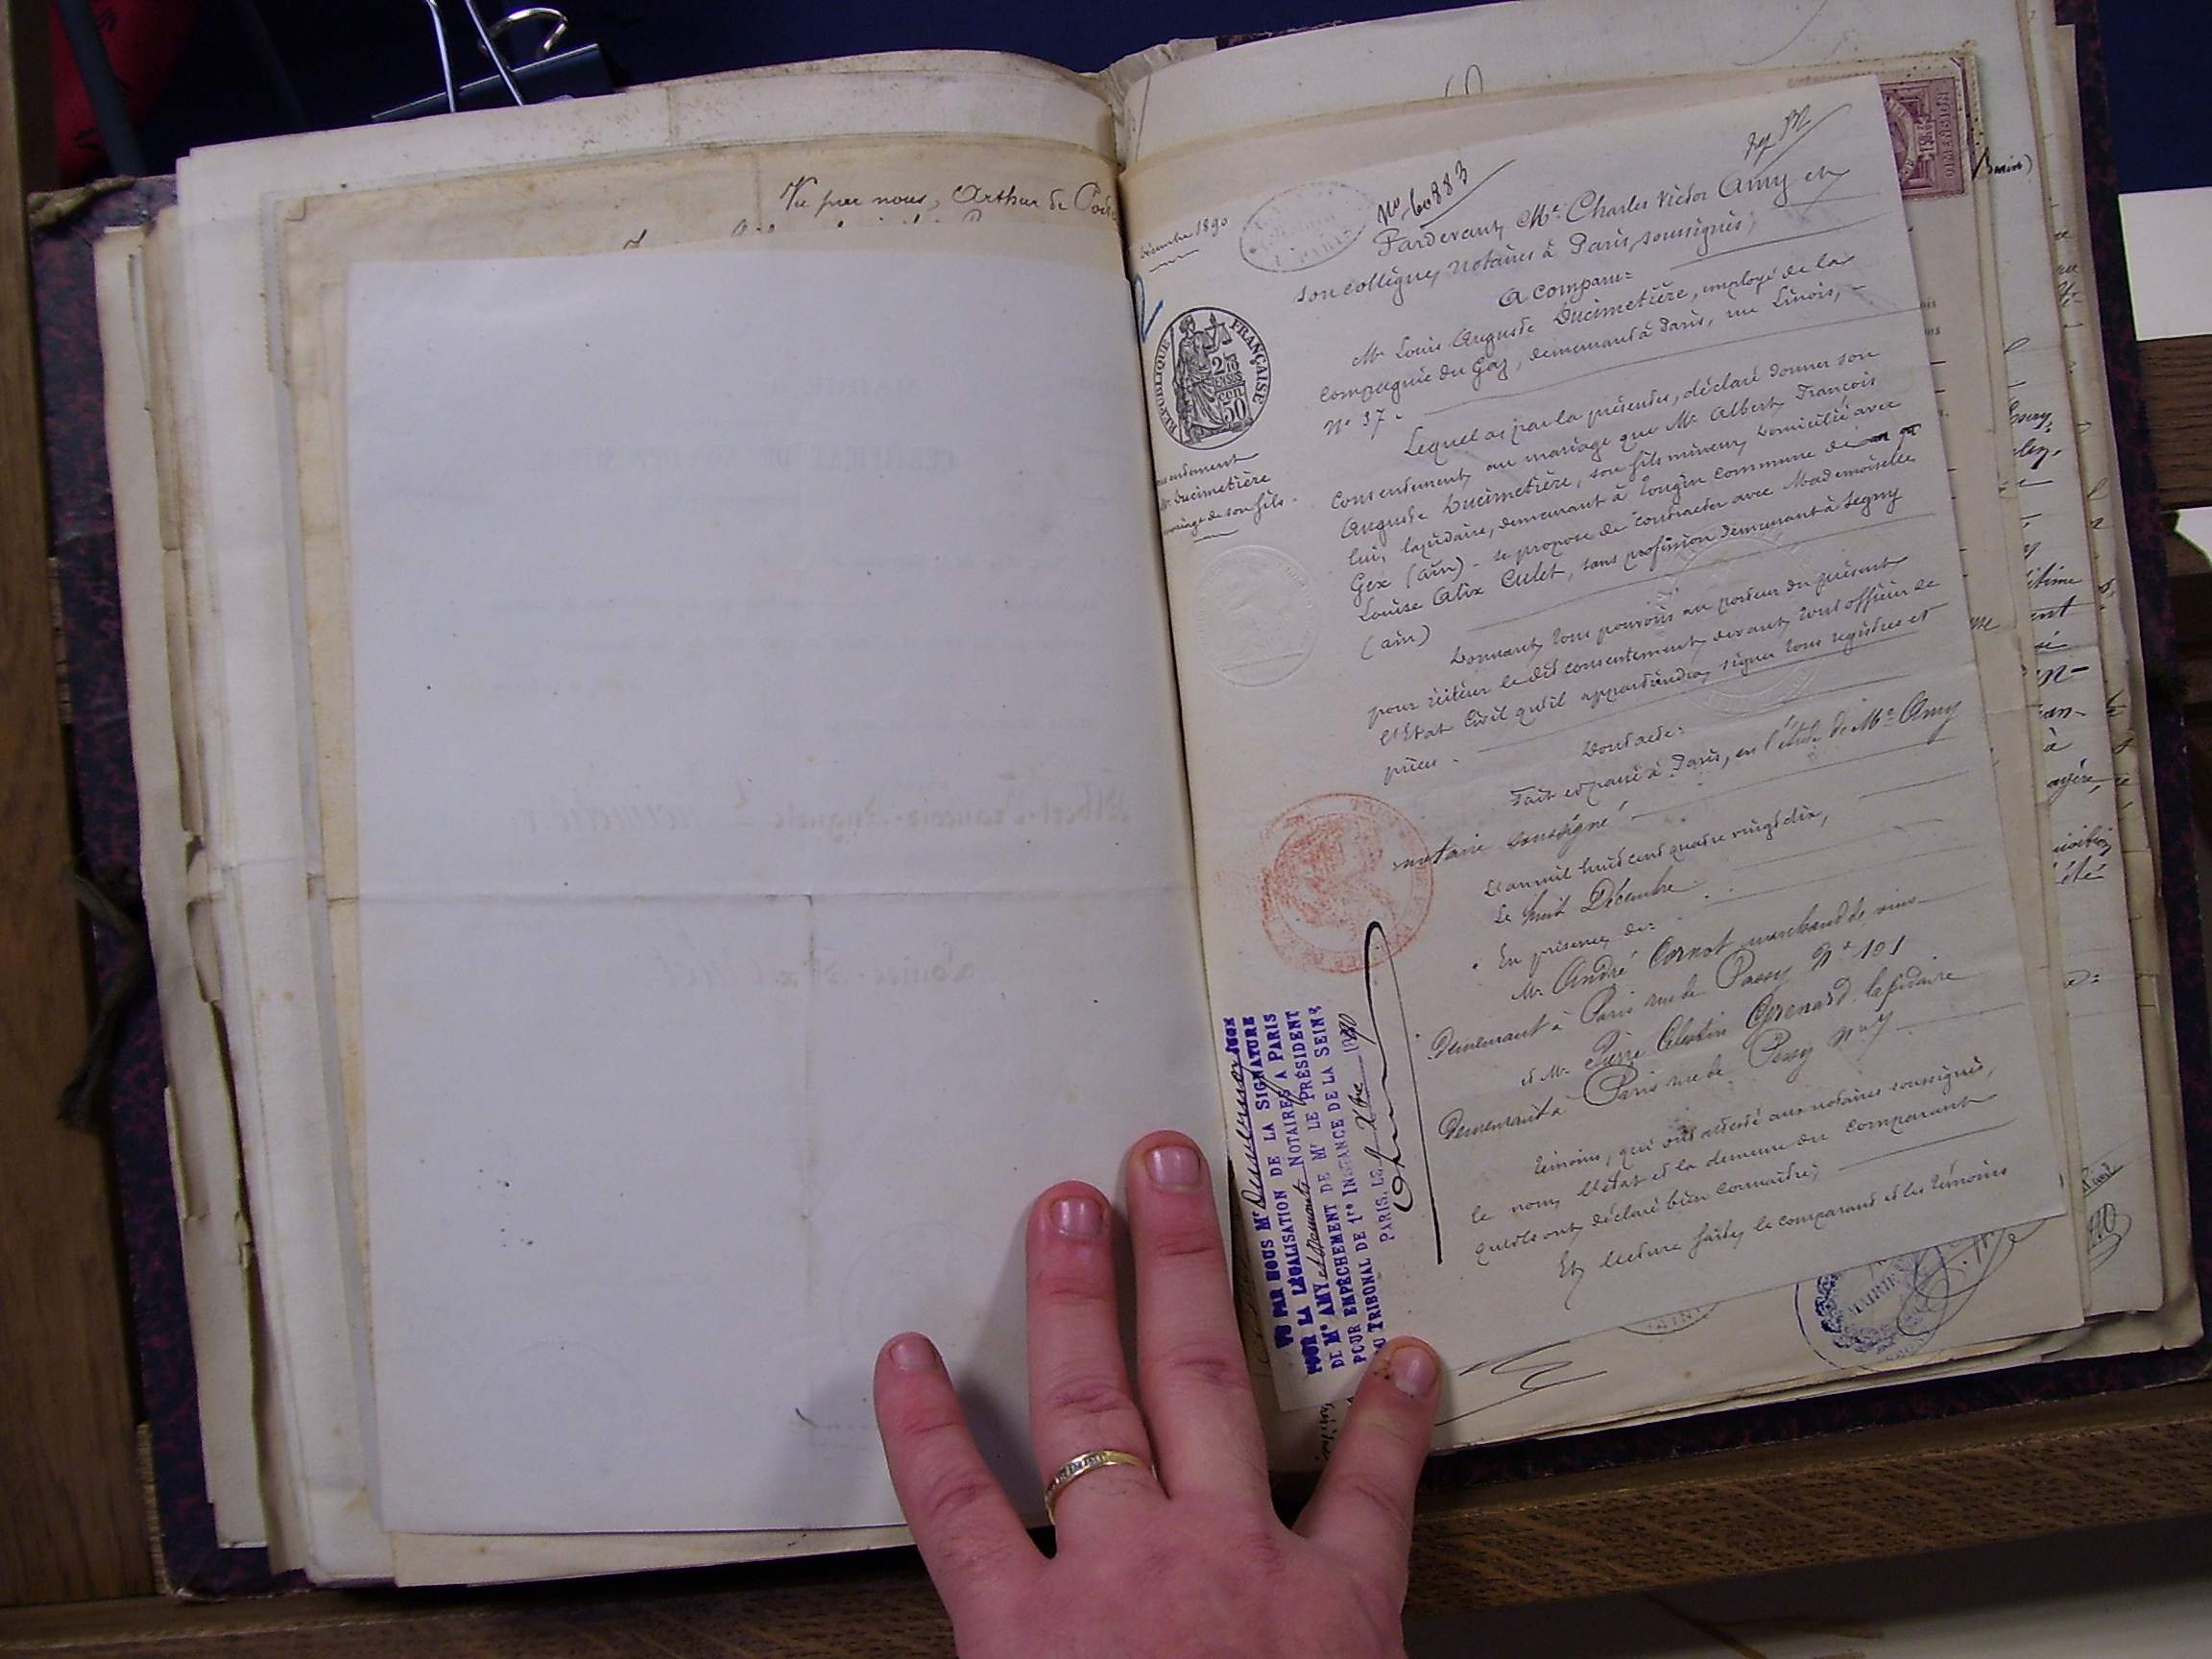 Vu par nous, Arthur de
Décembre 1890
No 60883
Pardevant Me Charles Victor Amy et
son collègue, notaires à Paris, soussignés;
A comparu:
Mr Louis Auguste Ducimetière, employé de la
compagnie du Gaz, demeurant à Paris, rue Linois,
No 37.
Lequel a par la présente, déclaré donner son
consentement au mariage que Mr Albert François
Auguste Ducimetière, son fils mineur, domicilié avec
lui, lapidaire, demeurant à Tougin commune de
Gex (ain) - se propose de contracter avec Mademoiselle
Louise Alix Culet, sans profession demeurant à Segny
(ain)
Donnant tous pouvoirs au porteur du présent
pour réitérer le dit consentement devant tout officier de
l'Etat Civil qu'il appartiendra, signer tous registres et
pièces.
Dont acte:
Fait et passé à Paris, en l'étude de Me Amy
notaire soussigné
L'an mil huit cent quatre vingt dix,
Le huit Décembre
En présence de:
Mr André Cornot marchand de vins
Demeurant à Paris rue de Passy No 101
et Mr Pierre Célestin Grenard lapidaire
Demeurant à Paris rue de Passy No 7
témoins, qui ont attesté aux notaires soussignés,
le nom, l'état et la demeure du comparant
qu'ils ont déclaré bien connaître;
Et lecture faite, le comparant et les témoins
RÉPUBLIQUE FRANÇAISE
2/10 EN SUS
50
Mr Ducimetière
mariage de son fils
VU PAR NOUS Mr JUGE
POUR LA LÉGALISATION DE LA SIGNATURE
DE Me AMY NOTAIRES A PARIS
POUR EMPÊCHEMENT DE Mr LE PRÉSIDENT
DU TRIBUNAL DE 1re INSTANCE DE LA SEINE
PARIS, LE Xbre 1890
DIMENSION
MAIRIE